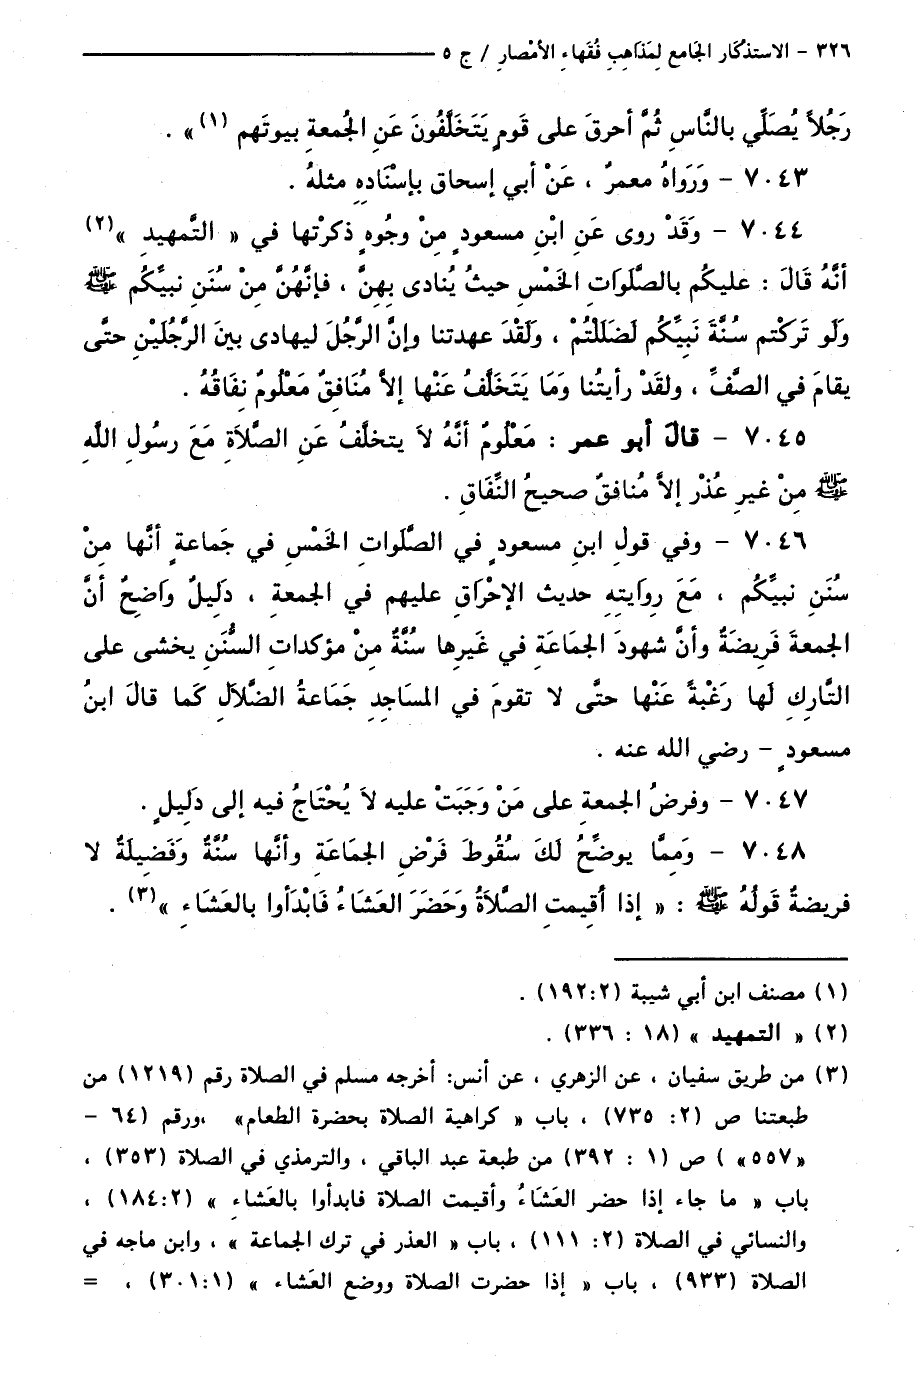 ٣٢٦ - الاستذكار الجامع لمذاهبِ فُقَهاءِ الأمْصارِ / ج ٥
رَجُلاً يُصَلِّي بالنَّاسِ ثُمَّ أحرقَ على قَومٍ يَتَخَلَّفُونَ عَنِ الجُمعةِ بيوتَهم (١)» .
٧٠٤٣ - وَرَواهُ معمرٌ ، عَنْ أبي إسحاق بإسْنَادِهِ مثلهُ .
٧٠٤٤ - وَقَدْ روى عَنِ ابْنِ مسعودٍ مِنْ وجُوهٍ ذكرْتها في « التَّمهيدِ »(٢)
أنَّهُ قَالَ : عليكُم بالصَّلوَاتِ الخَمْسِ حيثُ يُنادى بِهنَّ ، فإنَّهُنَّ مِنْ سُنَنِ نبيِّكُم ﷺ
وَلَو تَركْتم سُنَّةَ نَبِيِّكُم لَضَلَلْتُمْ ، وَلَقْدَ عهدتنا وإنَّ الرَّجُلَ ليهادى بينَ الرَّجُلَيْنِ حتَّى
يقامَ في الصَّفِّ ، ولقدْ رأيتُنا وَمَا يَتَخَلَّفُ عَنْها إلاَّ مُنَافقٌ مَعْلُومٌ نفَاقُهُ .
٧٠٤٥ - قالَ أبو عمر : مَعْلُومٌ أنَّهُ لاَ يتخلَّفُ عَنِ الصَّلاَةِ مَعَ رسُولِ اللَّهِ
ﷺ مِنْ غيرِ عُذْرٍ إلاَّ مُنافقٌ صحيحُ النِّفَاقِ .
٧٠٤٦ - وفي قولِ ابنِ مسعودٍ في الصَّلَواتِ الخَمْسِ في جَماعةٍ أنَّها مِنْ
سُنَنِ نبيِّكُم ، مَعَ روَايتِهِ حديث الإحْرَاقِ عليهم في الجمعةِ ، دَلِيلٌ وَاضحٌ أنَّ
الجمعةَ فَرِيضَةٌ وأنَّ شهودَ الجمَاعَةِ في غَيرِها سُنَّةٌ مِنْ مؤكدات السُّنَنِ يخشى على
التَّاركِ لَها رَغْبةً عَنْها حتَّى لا تقومَ في المسَاجِدِ جَمَاعةُ الضَّلاَلِ كَما قالَ ابنُ
مسعودٍ - رضي الله عنه .
٧٠٤٧ - وفرضُ الجمعةِ على مَنْ وَجَبَتْ عليه لاَ يُحْتَاجُ فيه إلى دَلِيلٍ .
٧٠٤٨ - وَمِمَّا يوضِّحُ لَكَ سُقُوطَ فَرْضِ الجمَاعَةِ وأنَّها سُنَّةٌ وَفَضِيلَةٌ لا
فريضةٌ قَولُهُ ﷺ : « إذا أُقِيمتِ الصَّلاَةُ وَحَضَرَ العَشَاءُ فَابْدَأوا بالعَشَاءِ »(٣) .
(١) مصنف ابن أبي شيبة (١٩٢:٢) .
(٢) « التمهيد » (١٨ : ٣٣٦) .
(٣) من طريق سفيان ، عن الزهري ، عن أنس: أخرجه مسلم في الصلاة رقم (١٢١٩) من
طبعتنا ص (٢: ٧٣٥) ، باب « كراهية الصلاة بحضرة الطعام» ،ورقم (٦٤ -
«٥٥٧» ) ص (١ : ٣٩٢) من طبعة عبد الباقي ، والترمذي في الصلاة (٣٥٣) ،
باب « ما جاء إذا حضر العَشَاءُ وأقيمت الصلاة فابدأوا بالعَشاءِ » (١٨٤:٢) ،
والنسائي في الصلاة (٢: ١١١) ، باب « العذر في ترك الجماعة » ، وابن ماجه في
الصلاة (٩٣٣) ، باب « إذا حضرت الصلاة ووضع العَشاء » (٣٠١:١) ، =